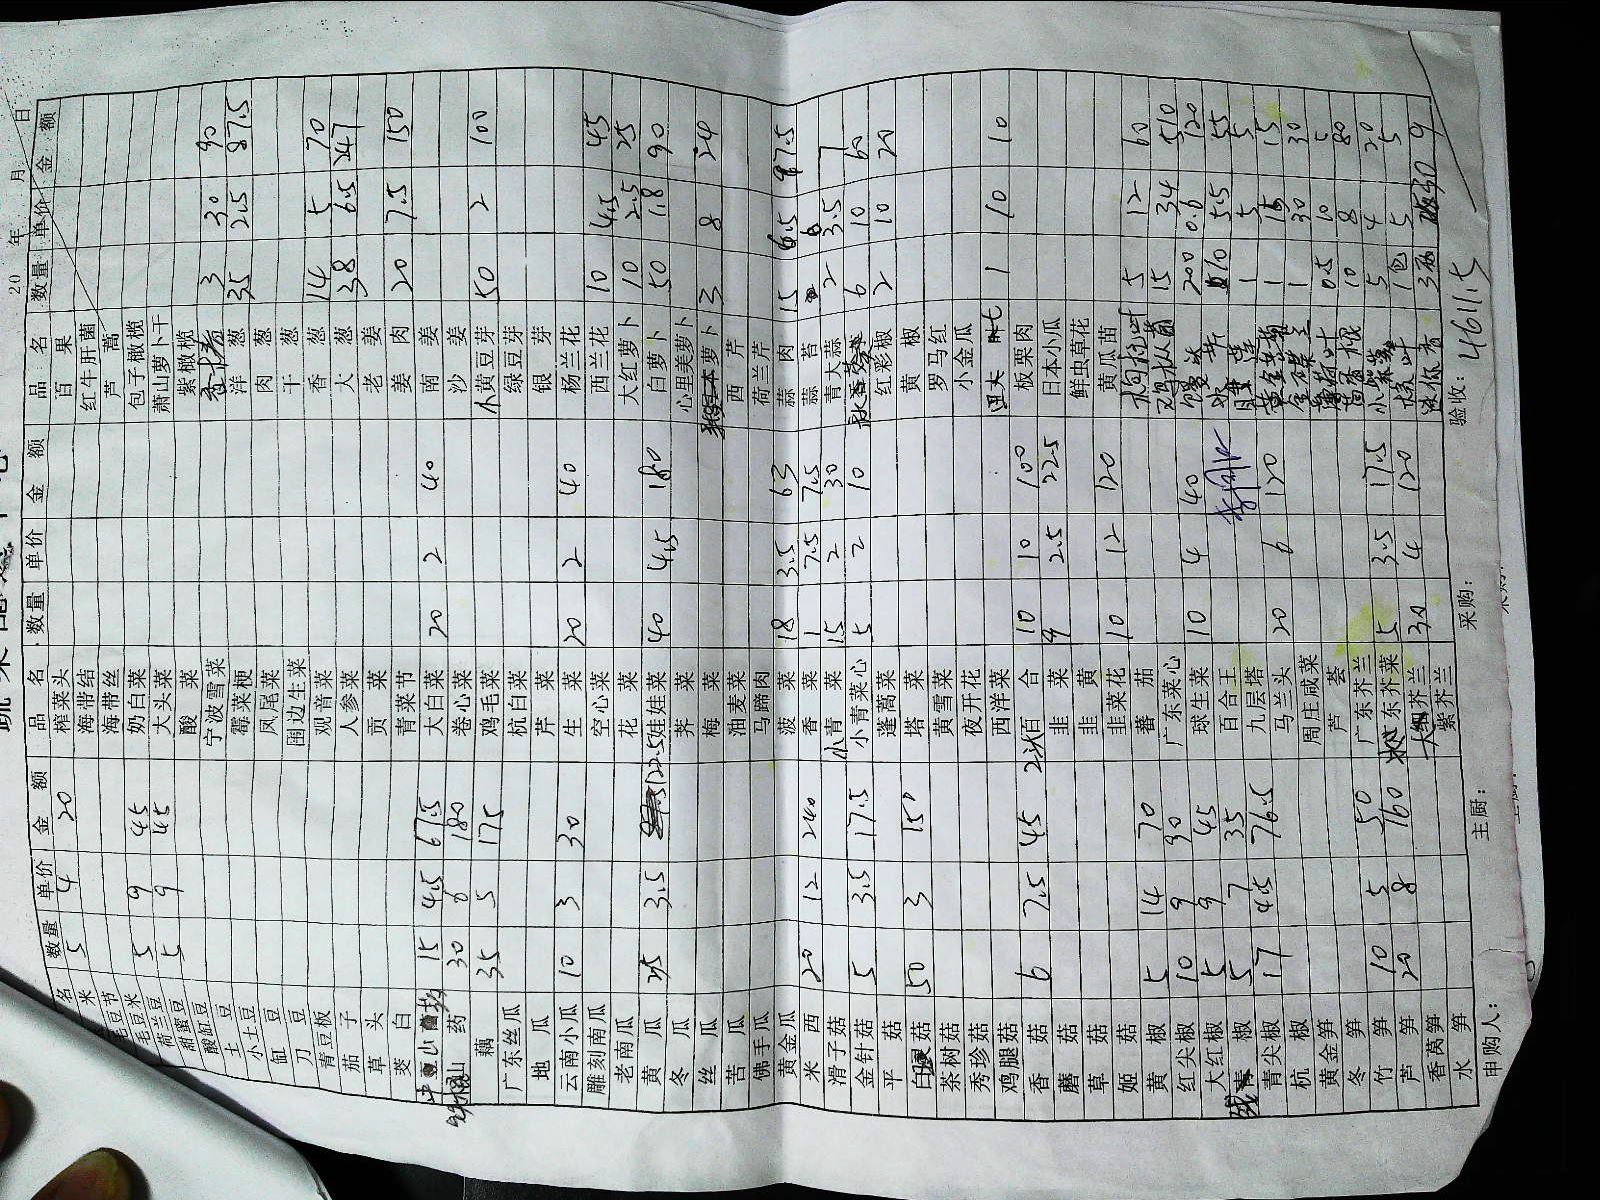 名 数量 单价 金额 品名 数量 单价 金额 品名 数量 单价 金额
20 年 月 日
米 5 4 20 榨菜头 百果
毛豆节 海带结 红牛肝菌
毛豆米 海带丝 芦蒿
荷兰豆 5 9 45 奶白菜 包子橄榄
甜蜜豆 5 9 45 大头菜 萧山萝卜干
酸缸豆 酸菜 紫橄榄
土豆 宁波雪菜 香椿 3 30 90
小土豆 霉菜梗 洋葱 35 2.5 87.5
缸豆 凤尾菜 肉葱
刀豆 围边生菜 干葱
青豆板 观音菜 香葱 14 5 70
茄子 人参菜 大葱 38 6.5 247
草头 贡菜 老姜
茭白 青菜节 姜肉 20 7.5 150
山药 15 4.5 67.5 大白菜 20 2 40 南姜
山药 30 6 180 卷心菜 沙姜
藕 35 5 175 鸡毛菜 小黄豆芽 50 2 100
广东丝瓜 杭白菜 绿豆芽
地瓜 芹菜 银芽
云南小瓜 10 3 30 生菜 20 2 40 杨兰花
雕刻南瓜 空心菜 西兰花 10 4.5 45
老南瓜 花菜 大红萝卜 10 2.5 25
黄瓜 35 3.5 122.5 娃娃菜 40 4.5 180 白萝卜 50 1.8 90
冬瓜 荠菜 心里美萝卜
丝瓜 梅菜 萝卜 3 8 24
苦瓜 油麦菜 西芹
佛手瓜 马蹄肉 荷兰芹
黄金瓜 菠菜 18 3.5 63 蒜肉 15 6.5 97.5
米西 20 12 240 香菜 1 7.5 7.5 蒜苔
滑子菇 小青菜 15 2 30 青大蒜 2 3.5 7
金针菇 5 3.5 17.5 小青菜心 5 2 10 6 10 60
平菇 蓬蒿菜 红彩椒 2 10 20
白菇 50 3 150 塔菜 黄椒
茶树菇 黄雪菜 罗马红
秀珍菇 夜开花 小金瓜
鸡腿菇 西洋菜 1 10 10
香菇 6 7.5 45 百合 10 10 100 板栗肉
蘑菇 韭菜 9 2.5 22.5 日本小瓜
草菇 韭黄 鲜虫草花
姬菇 韭菜花 10 12 120 黄瓜苗
黄椒 5 14 70 蕃茄 5 12 60
红尖椒 10 9 90 广东菜心 15 34 510
大红椒 5 9 45 球生菜 10 4 40 200 0.6 120
椒 5 7 35 百合王 10 5.5 55
青尖椒 17 4.5 76.5 九层塔 1 5 5
杭椒 马兰头 20 6 120 1 15 15
黄金笋 周庄咸菜 1 30 30
冬笋 芦荟 0.5 10 5
竹笋 10 5 50 广东芥兰 10 8 80
芦笋 20 8 160 广东芥菜 5 3.5 17.5 5 4 20
香莴笋 芥兰 30 4 120 1包 5 5
水笋 紫芥兰 30 9
申购人： 主厨： 采购： 验收：4611.5